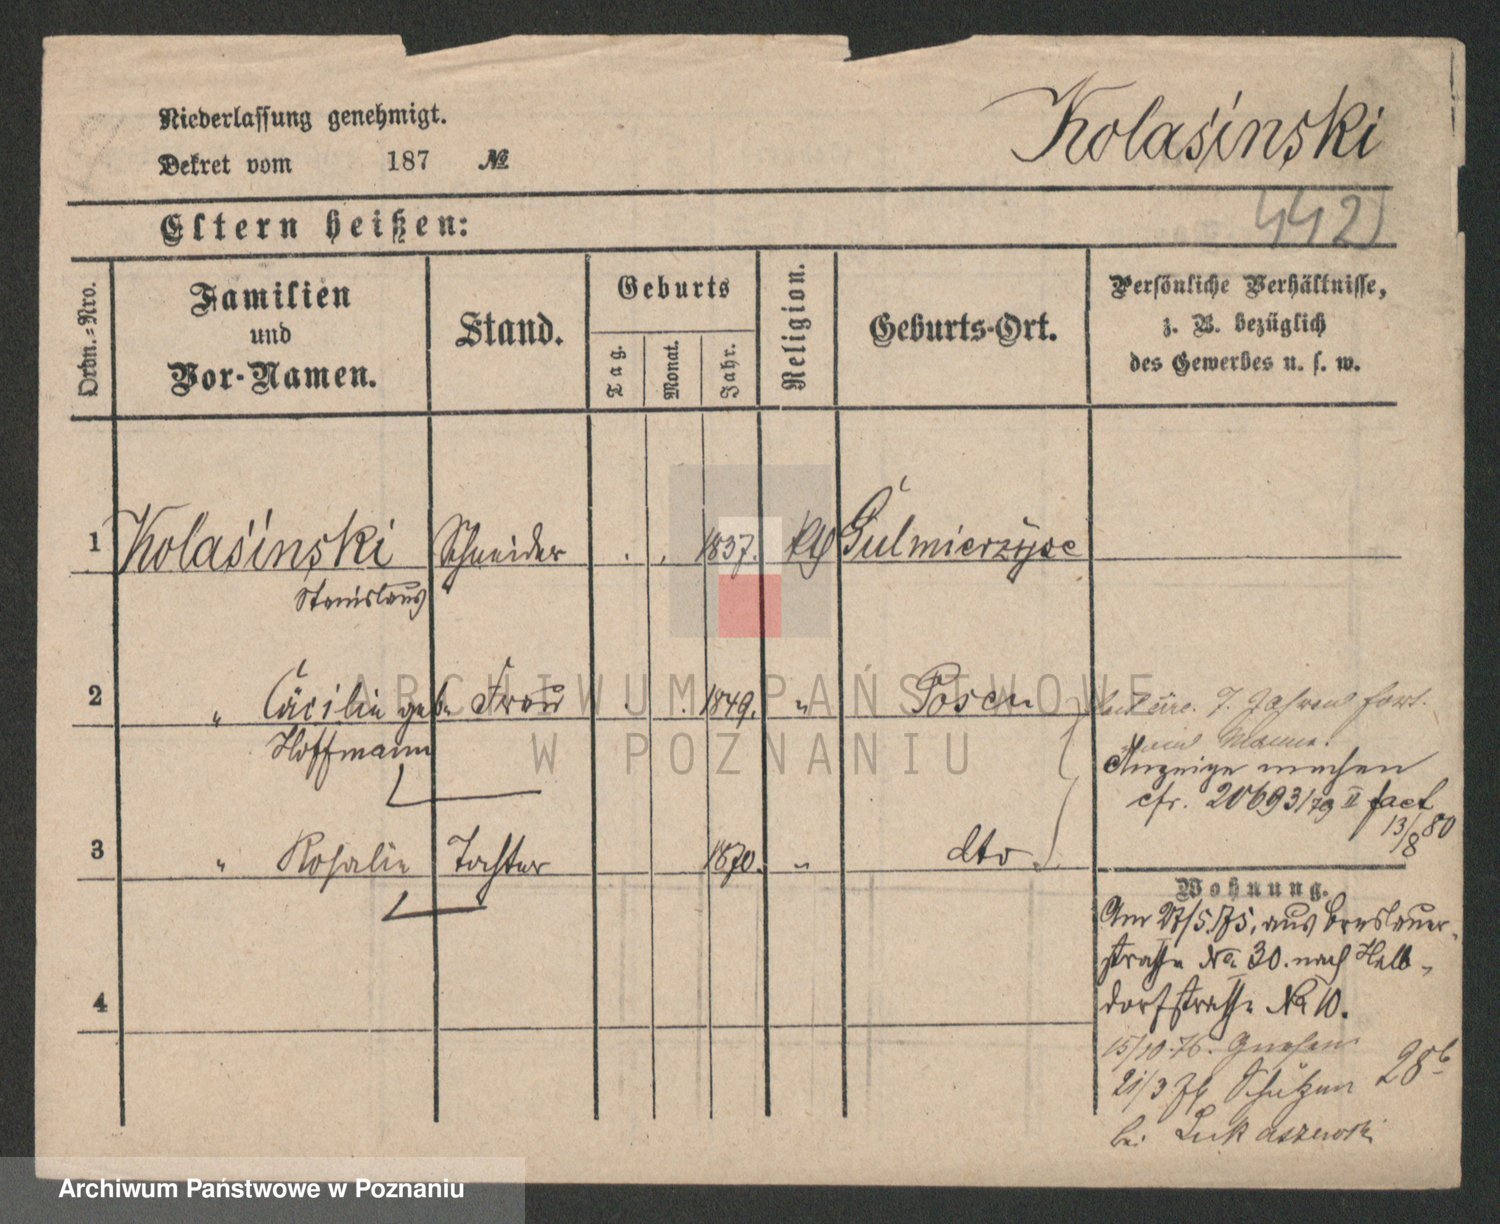 Niederlassung genehmigt.
Dekret vom 187 №
Kolasinski
442
Eltern heißen:
Ordn.=Nro.
Familien
und
Vor-Namen.
Stand.
Geburts
Tag.
Monat.
Jahr.
Religion.
Geburts-Ort.
Persönliche Verhältnisse,
z. B. bezüglich
des Gewerbes u. s. w.
1 Kolasinski Schneider . . 1837. Kth Sulmierzyce
Stanislaus
2 " Cäcilie geb. Frau . . 1849. " Posen
Hoffmann
7. Jahren fort.
Anzeige machen
cfr. 20693/79 II fact
13/8 80
3 " Rosalie Tochter 1870. " dto
Wohnung.
Am 27/5.75. aus Breslauer-
strasse No. 30. nach Halb-
dorfstrasse No 10.
15/10.76. Gnesen
21/3 Schützen 28b
bei Lukaszewski
4
ARCHIWUM PAŃSTWOWE
W POZNANIU
Archiwum Państwowe w Poznaniu